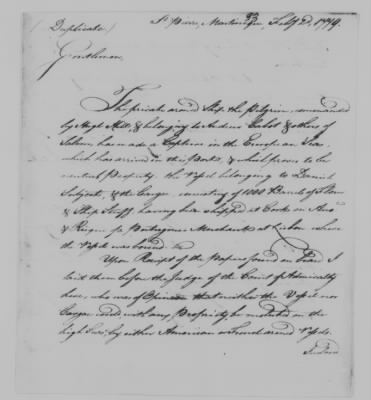 (Duplicate) St Pierre, Martinique, Feby 2d, 1779.
Gentlemen,
The private armed Ship the Pilgrim, commanded
by Hugh Hill, & belonging to Andrew Cabot & others of
Salem has made a Capture in the European Seas,
which has arrived in this Port, & which proves to be
neutral Property. the Vessel belonging to Danish
Subjects, & the Cargo, consisting of 1000 Barrels of
& Ship Stuff having been shipped at Cork on
& Risque for Portuguese Merchants at Lisbon where
the Vessel was bound to
Upon Receipt of the Papers found on board I
laid them before the Judge of the Court of Admiralty
here, who was of Opinion that neither the Vessel nor
Cargo could, with any Propriety, be molested on the
high Seas, by either American or French armed Vessels.